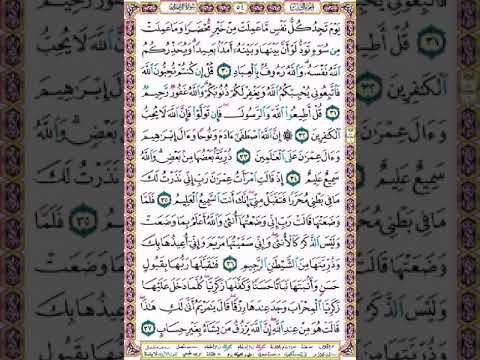 ٥٤
يَوْمَ تَجِدُ كُلُّ نَفْسٍ مَّا عَمِلَتْ مِنْ خَيْرٍ مُّحْضَرًا وَمَا عَمِلَتْ
مِن سُوٓءٍ تَوَدُّ لَوْ أَنَّ بَيْنَهَا وَبَيْنَهُۥٓ أَمَدًۢا بَعِيدًا ۗ وَيُحَذِّرُكُمُ
ٱللَّهُ نَفْسَهُۥ ۗ وَٱللَّهُ رَءُوفٌۢ بِٱلْعِبَادِ ٣٠ قُلْ إِن كُنتُمْ تُحِبُّونَ ٱللَّهَ
فَٱتَّبِعُونِى يُحْبِبْكُمُ ٱللَّهُ وَيَغْفِرْ لَكُمْ ذُنُوبَكُمْ ۗ وَٱللَّهُ غَفُورٌ رَّحِيمٌ
٣١ قُلْ أَطِيعُوا۟ ٱللَّهَ وَٱلرَّسُولَ ۖ فَإِن تَوَلَّوْا۟ فَإِنَّ ٱللَّهَ لَا يُحِبُّ
ٱلْكَٰفِرِينَ ٣٢ ۞ إِنَّ ٱللَّهَ ٱصْطَفَىٰٓ ءَادَمَ وَنُوحًا وَءَالَ إِبْرَٰهِيمَ
وَءَالَ عِمْرَٰنَ عَلَى ٱلْعَٰلَمِينَ ٣٣ ذُرِّيَّةًۢ بَعْضُهَا مِنۢ بَعْضٍ ۗ وَٱللَّهُ
سَمِيعٌ عَلِيمٌ ٣٤ إِذْ قَالَتِ ٱمْرَأَتُ عِمْرَٰنَ رَبِّ إِنِّى نَذَرْتُ لَكَ
مَا فِى بَطْنِى مُحَرَّرًا فَتَقَبَّلْ مِنِّىٓ ۖ إِنَّكَ أَنتَ ٱلسَّمِيعُ ٱلْعَلِيمُ ٣٥ فَلَمَّا
وَضَعَتْهَا قَالَتْ رَبِّ إِنِّى وَضَعْتُهَآ أُنثَىٰ وَٱللَّهُ أَعْلَمُ بِمَا وَضَعَتْ
وَلَيْسَ ٱلذَّكَرُ كَٱلْأُنثَىٰ ۖ وَإِنِّى سَمَّيْتُهَا مَرْيَمَ وَإِنِّىٓ أُعِيذُهَا بِكَ
وَذُرِّيَّتَهَا مِنَ ٱلشَّيْطَٰنِ ٱلرَّجِيمِ ٣٦ فَتَقَبَّلَهَا رَبُّهَا بِقَبُولٍ
حَسَنٍ وَأَنۢبَتَهَا نَبَاتًا حَسَنًا وَكَفَّلَهَا زَكَرِيَّا ۖ كُلَّمَا دَخَلَ عَلَيْهَا
زَكَرِيَّا ٱلْمِحْرَابَ وَجَدَ عِندَهَا رِزْقًا ۖ قَالَ يَٰمَرْيَمُ أَنَّىٰ لَكِ هَٰذَا ۖ
قَالَتْ هُوَ مِنْ عِندِ ٱللَّهِ ۖ إِنَّ ٱللَّهَ يَرْزُقُ مَن يَشَآءُ بِغَيْرِ حِسَابٍ ٣٧